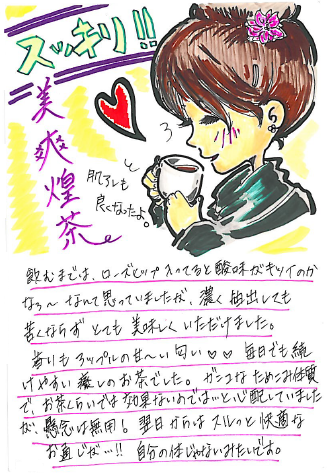 スッキリ!!
美爽煌茶
肌アレも
良くなったよ。
飲むまでは、ローズヒップ入ってると酸味がキツイのか
なぁ〜 なんて思っていましたが、濃く抽出しても
苦くならず とても 美味しく いただけました。
香りも アップルの甘〜い 匂い♡♡ 毎日でも続
けやすい 癒しのお茶でした。ガンコな ためこみ体質
で、お茶くらいでは 効果ないのでは…と心配していました
が、懸念は無用! 翌日からは スルッと 快適な
お通じが…!! 自分の体じゃないみたいです。